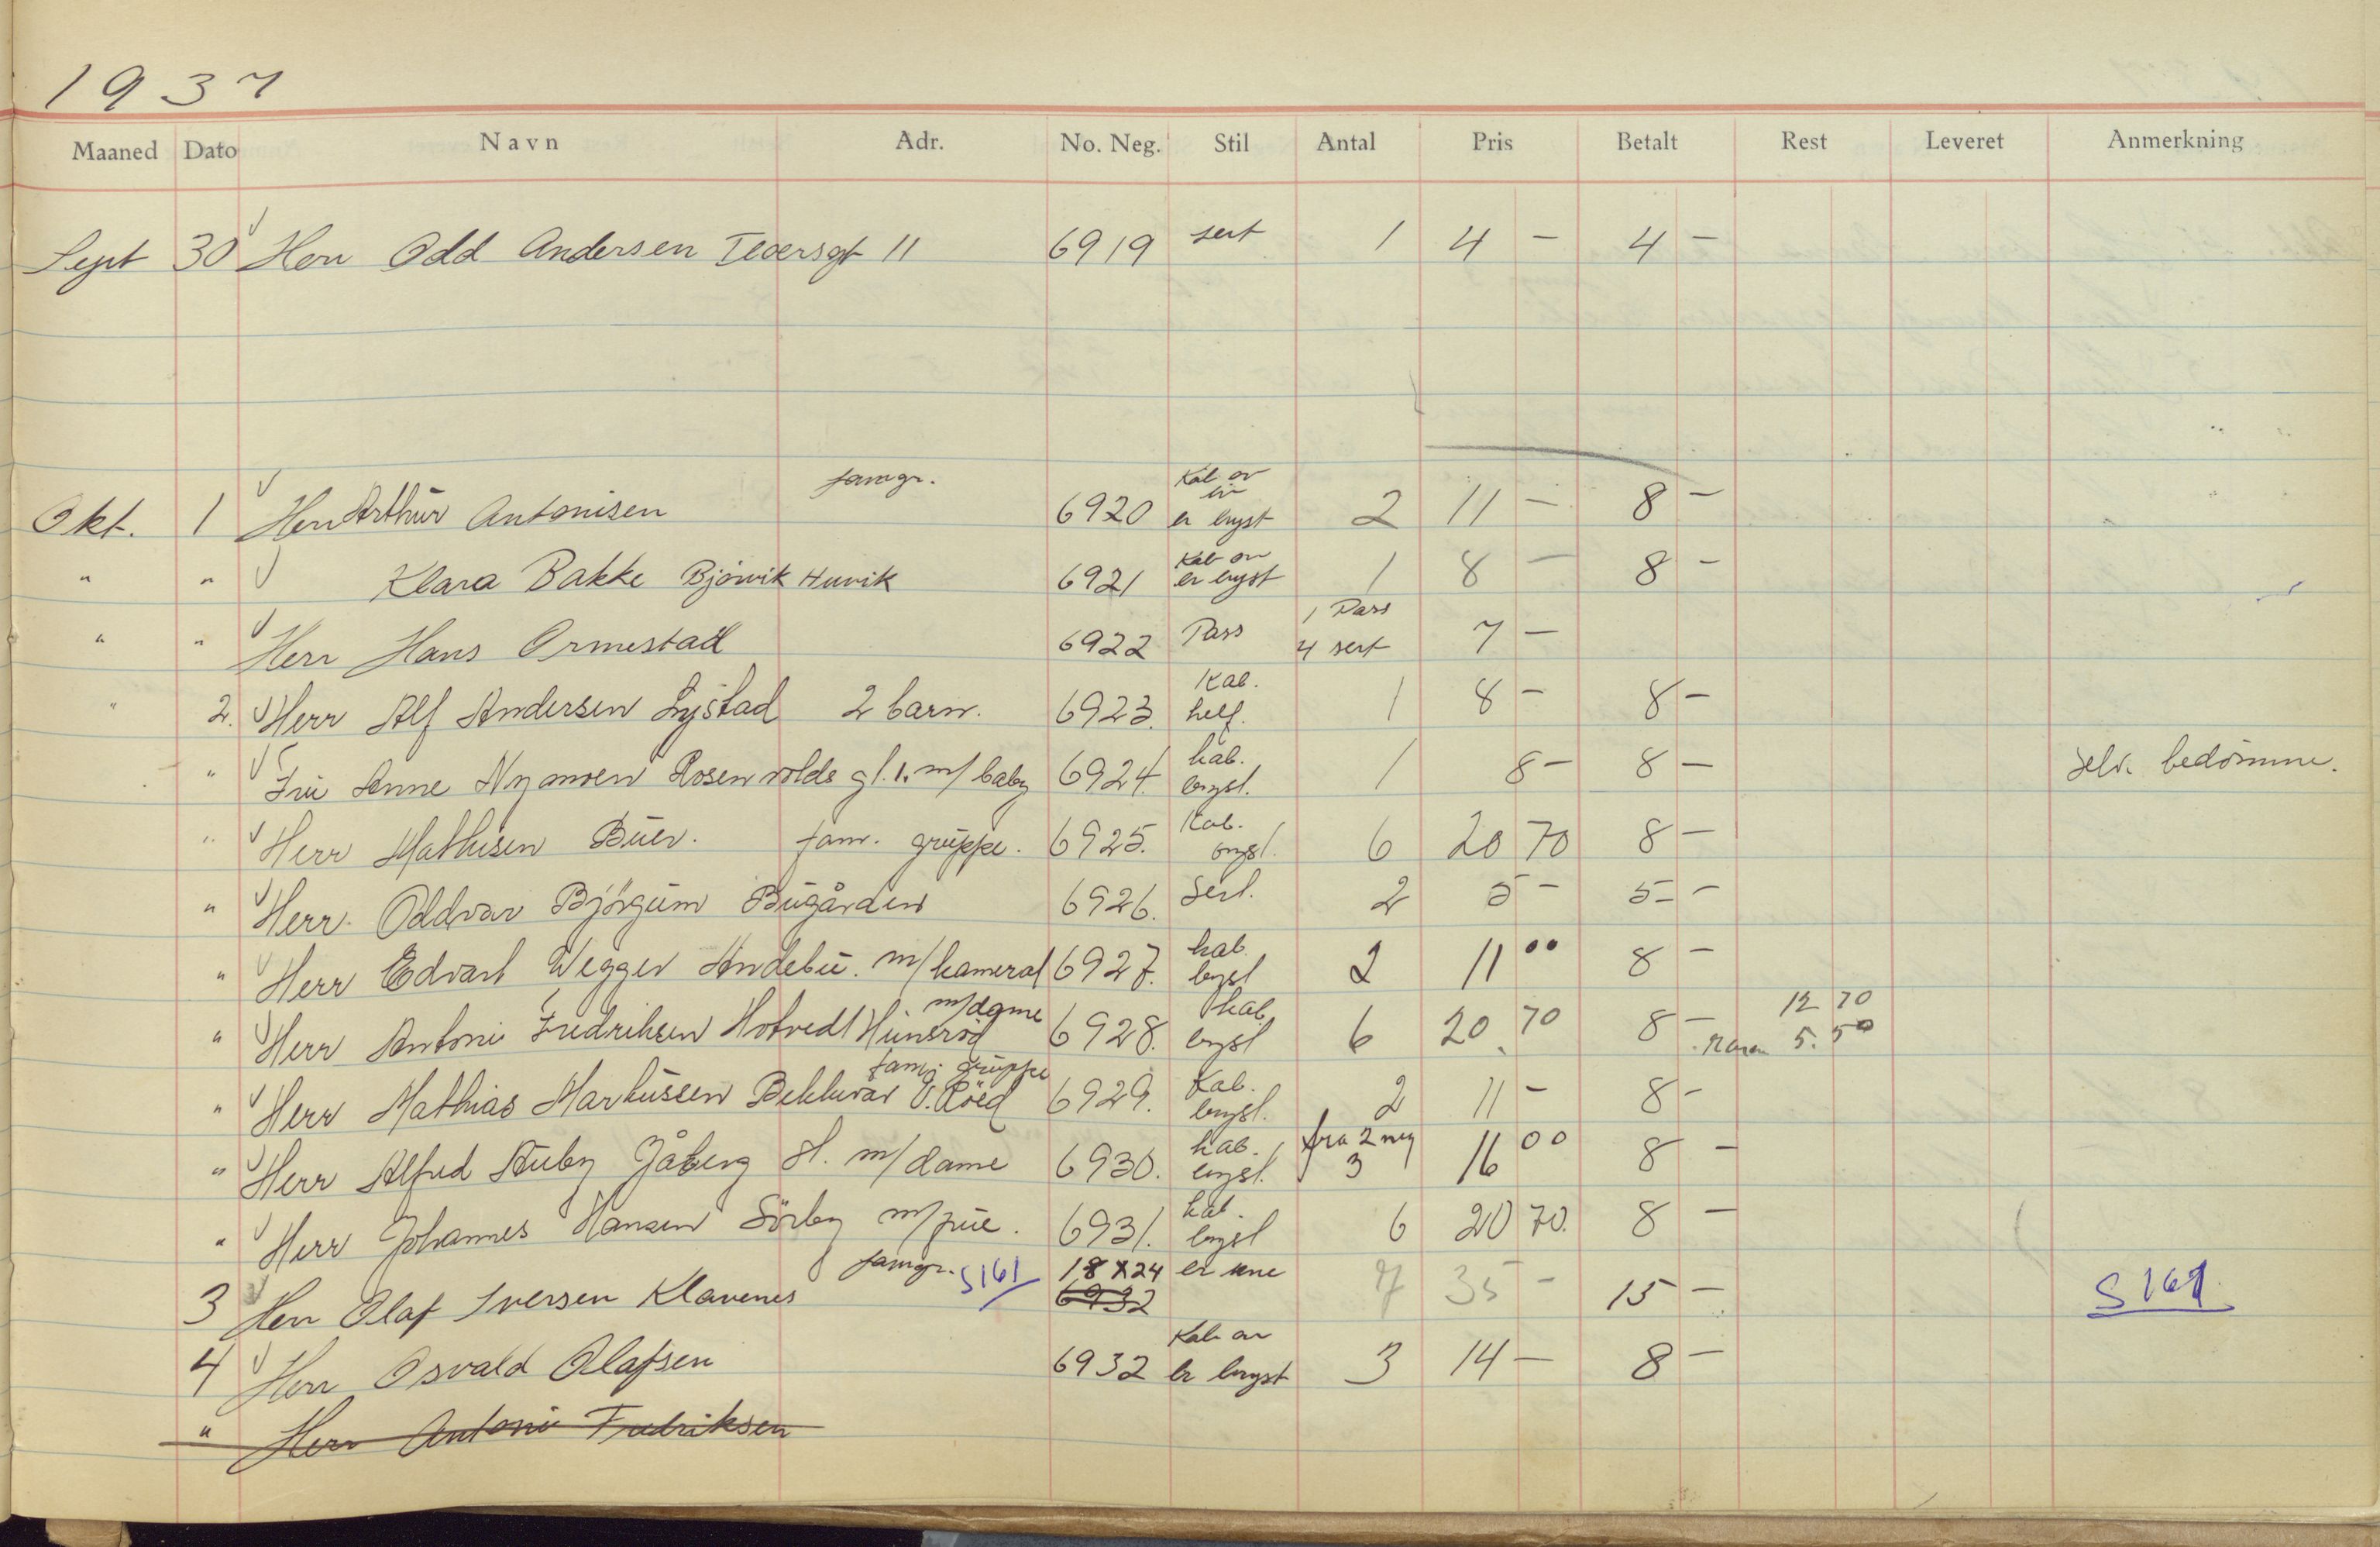 1937
Maaned Dato Navn Adr. No. Neg. Stil Antal Pris Betalt Rest Leveret Anmerkning
Sept 30 Herr Odd Andersen 11 6919 sert 1 4 - 4 -
famgr. Kab av
Okt. 1 Herr Arthur Antonisen 6920 er bryst 2 11 - 8 -
Kab av
" " Klara Bakke Bjørvik Huvik 6921 er bryst 1 8 - 8 -
1 Pass
" " Herr Hans Ormestad 6922 Pass 4 sert 7 -
Kab.
" 2. Herr Alf Andersen 2 barn. 6923. helf. 1 8 - 8 -
kab.
" Fru Anne Nymoen Rosenvolds gt. 1. m/ baby 6924. bryst. 1 8 - 8 - selv. bedömme.
Kab.
" Herr Mathisen Buer. fam. gruppe. 6925. 6 20 70 8 -
" Herr. Oddvar Björgum Bugården 6926. Sert. 2 5 - 5 -
kab.
" Herr Edvart Wegger Andebu. m/ kamerat 6927. bryst 2 11 00 8 -
m/dame kab. 12 70
" Herr Antoni Fredriksen Hotvedt Hunsröd 6928. bryst 6 20 70 8 - 5. 50
fam. gruppe Kab.
" Herr Mathias Markussen Bekkevar Ø. Röed 6929. bryst. 2 11 - 8 -
kab. fra 2 neg
" Herr Alfred Auby Jåberg st. m/ dame 6930. bryst. 3 16 00 8 -
kab.
" Herr Johannes Hansen Sörby m/ frue. 6931. bryst 6 20 70. 8 -
famgr. S161 18 x 24 er kne
3 Herr Olaf Iversen Klavenes 6932 7 35 - 15 - S 161.
Kab av
4 Herr Osvald Olafsen 6932 er bryst 3 14 - 8 -
" Herr Antoni Fredriksen